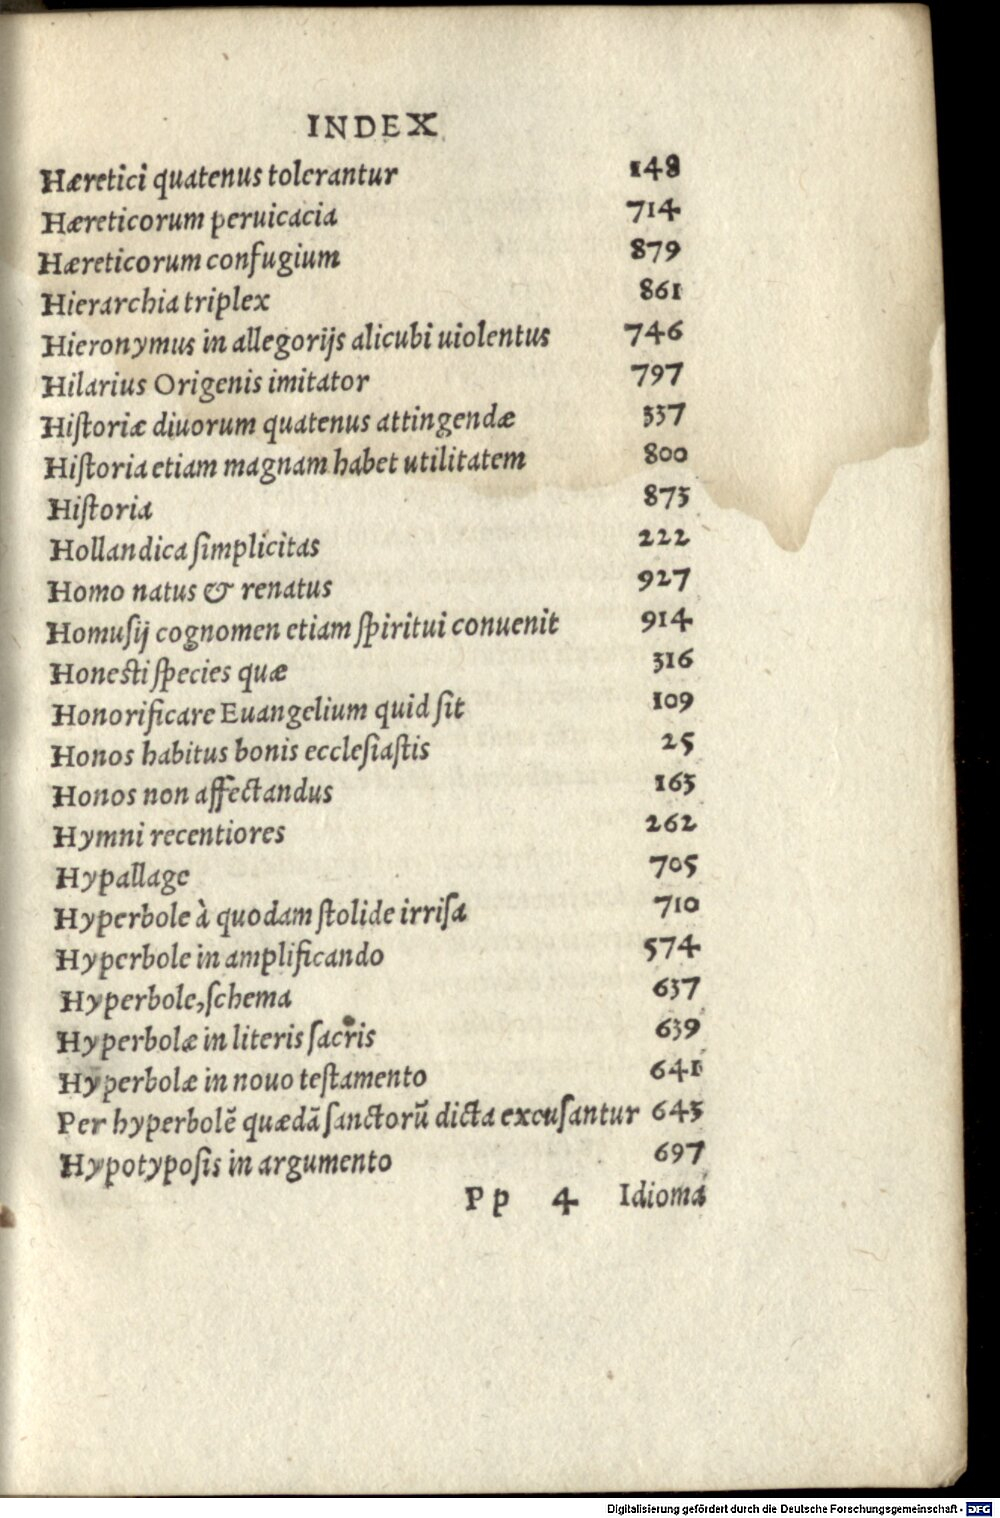 INDEX
Hæretici quatenus tolerantur 148
Hæreticorum peruicacia 714
Hæreticorum confugium 879
Hierarchia triplex 861
Hieronymus in allegorijs alicubi uiolentus 746
Hilarius Origenis imitator 797
Hiſtoriæ diuorum quatenus attingendæ 337
Hiſtoria etiam magnam habet utilitatem 800
Hiſtoria 873
Hollandica ſimplicitas 222
Homo natus & renatus 927
Homuſij cognomen etiam ſpiritui conuenit 914
Honeſti ſpecies quæ 316
Honorificare Euangelium quid ſit 109
Honos habitus bonis eccleſiaſtis 25
Honos non affectandus 163
Hymni recentiores 262
Hypallage 705
Hyperbole à quodam ſtolide irriſa 710
Hyperbole in amplificando 574
Hyperbole, ſchema 637
Hyperbolæ in literis ſacris 639
Hyperbolæ in nouo teſtamento 641
Per hyperbolē quædā ſanctorū dicta excuſantur 643
Hypotypoſis in argumento 697
Pp 4 Idioma
Digitalisierung gefördert durch die Deutsche Forschungsgemeinschaft - DFG